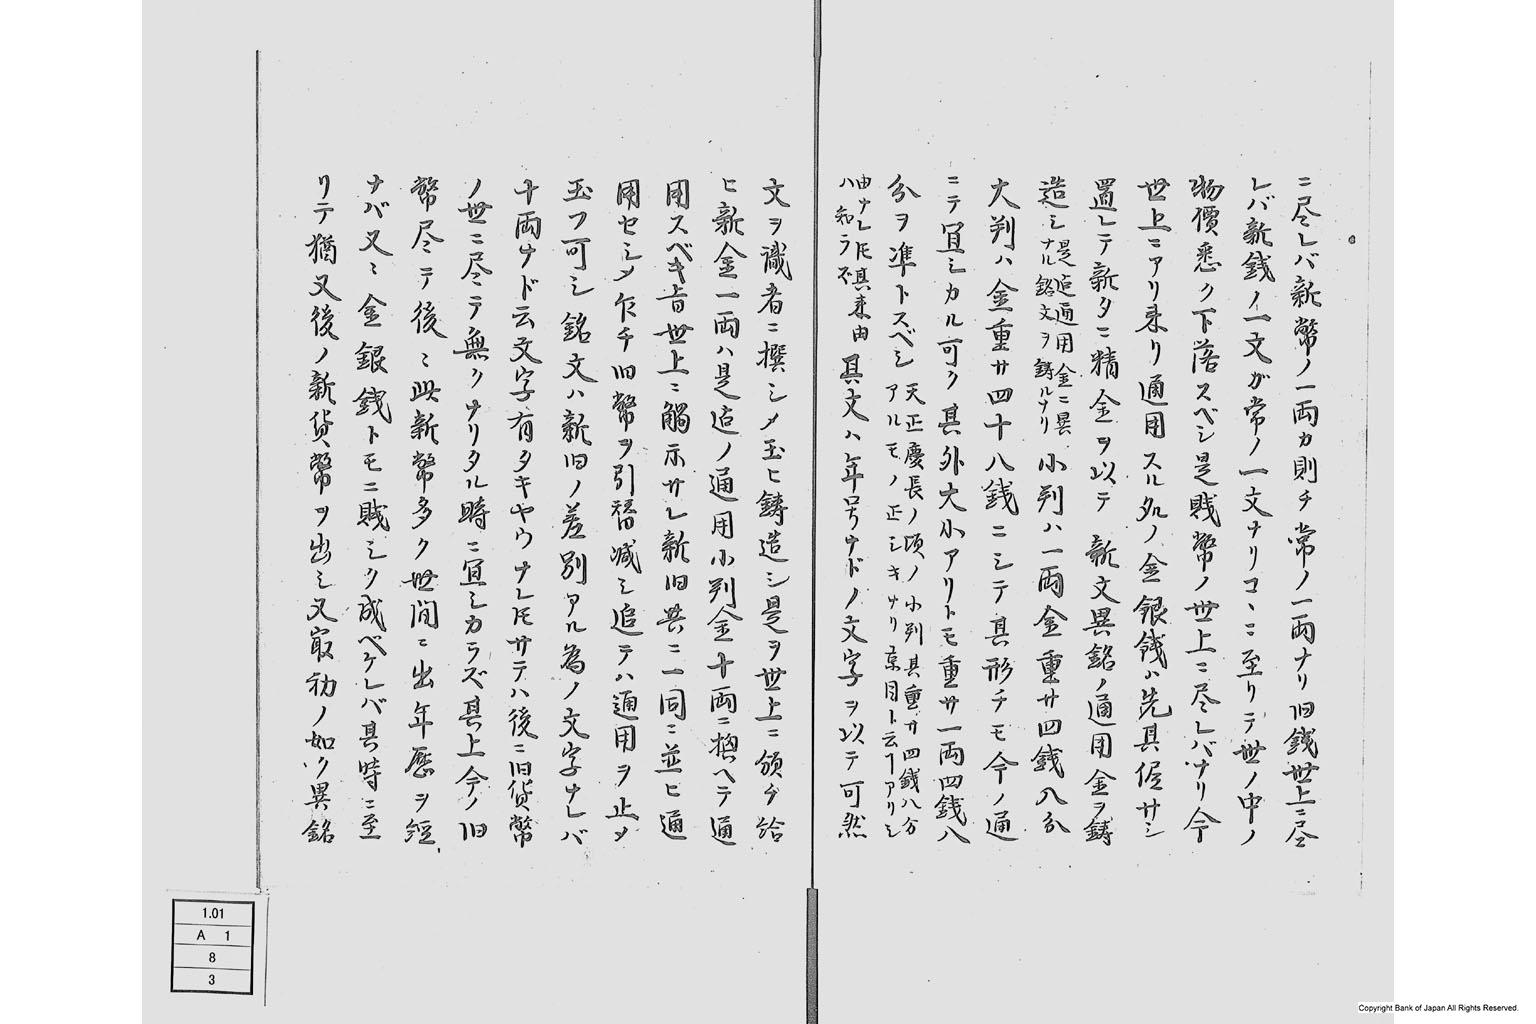 ニ尽レバ新幣ノ一両カ則チ常ノ一両ナリ旧銭世上ニ尽
レバ新銭ノ一文ガ常ノ一文ナリコヽニ至リテ世ノ中ノ
物價悉ク下落スベシ是賎幣ノ世上ニ尽レバナリ今
世上ニアリ来リ通用スル処ノ金銀銭ハ先其侭サシ
置レテ新タニ精金ヲ以テ新文異銘ノ通用金ヲ鋳
造シ
是迠通用金ニ異
ナル銘文ヲ鋳ルナリ
小判ハ一両金重サ四銭八分
大判ハ金重サ四十八銭ニシテ其形チモ今ノ通
ニテ冝シカル可ク其外大小アリトモ重サ一両四銭八
分ヲ準トスベシ
天正慶長ノ頃ノ小判其重サ四銭八分
アルモノ正シキナリ京目ト云フアリシ
由ナレ𪜈其来由
ハ知ラ不
其文ハ年号ナドノ文字ヲ以テ可然
文ヲ識者ニ撰シメ玉ヒ鋳造シ是ヲ世上ニ頒チ給
ヒ新金一両ハ是迠ノ通用小判金十両ニ換ヘテ通
用スベキ旨世上ニ觸示サレ新旧共ニ一同ニ並ヒ通
用セシメ乍チ旧幣ヲ引替减シ追テハ通用ヲ止メ
玉フ可シ銘文ハ新旧ノ差別アル為ノ文字ナレバ
十両ナド云文字有タキヤウナレ𪜈サテハ後ニ旧貨幣
ノ世ニ尽テ無クナリタル時ニ冝シカラズ其上今ノ旧
幣尽テ後ニ此新幣多ク世間ニ出年歴ヲ經
ナバ又ニ金銀銭トモニ賎シク成ベケレバ其時ニ至
リテ猶又後ノ新貨幣ヲ出シ又最初ノ如ク異銘
1.01
A 1
8
3
Copyright Bank of Japan All Rights Reserved.